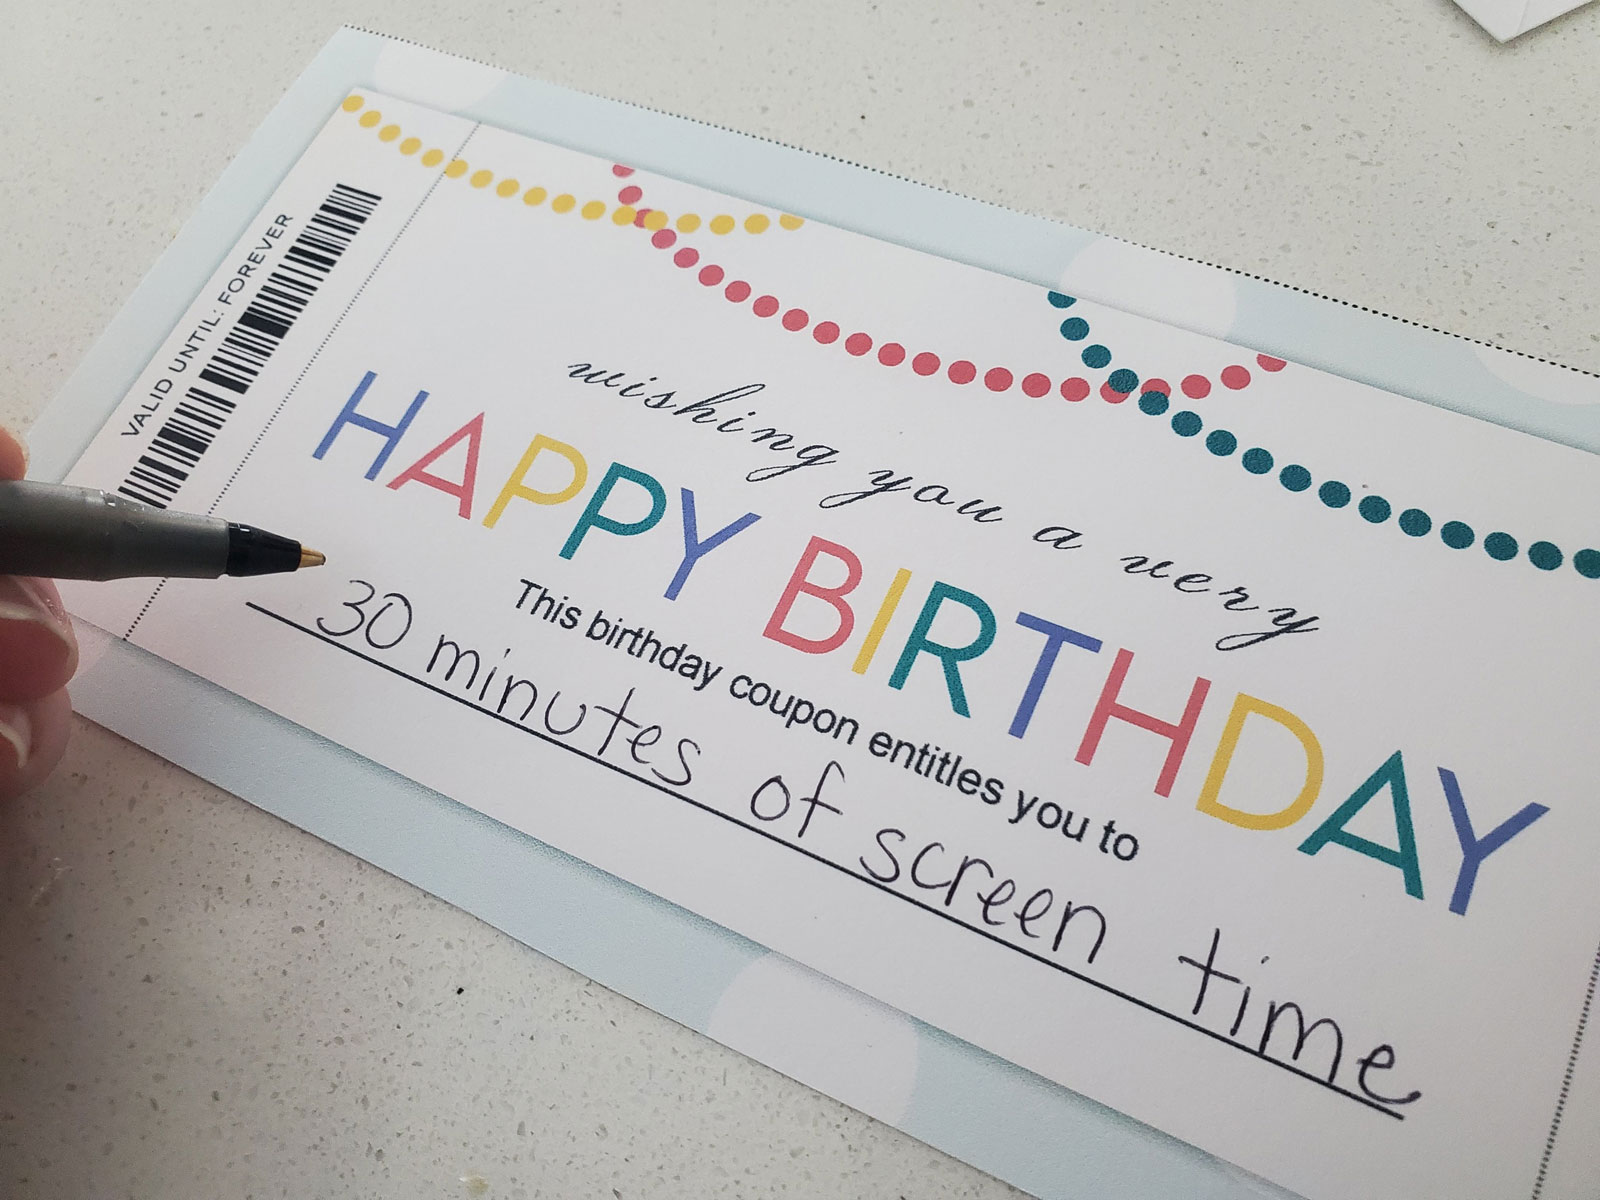 VALID UNTIL: FOREVER
wishing you a very
HAPPY BIRTHDAY
This birthday coupon entitles you to
30 minutes of screen time